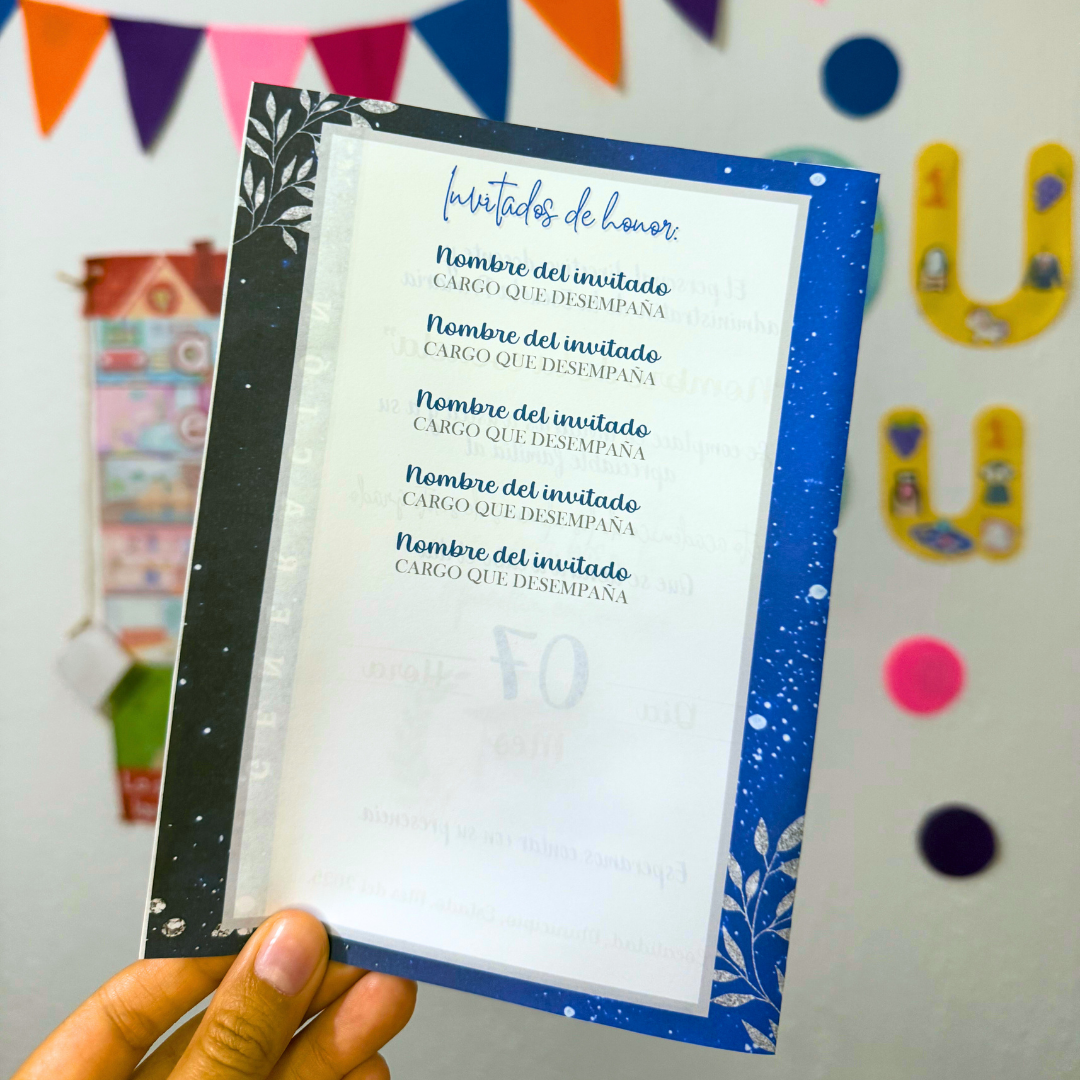 Invitados de honor:
Nombre del invitado
CARGO QUE DESEMPAÑA
Nombre del invitado
CARGO QUE DESEMPAÑA
Nombre del invitado
CARGO QUE DESEMPAÑA
Nombre del invitado
CARGO QUE DESEMPAÑA
Nombre del invitado
CARGO QUE DESEMPAÑA
07
Hora
Día
Mes
Esperamos contar con su presencia
U
U